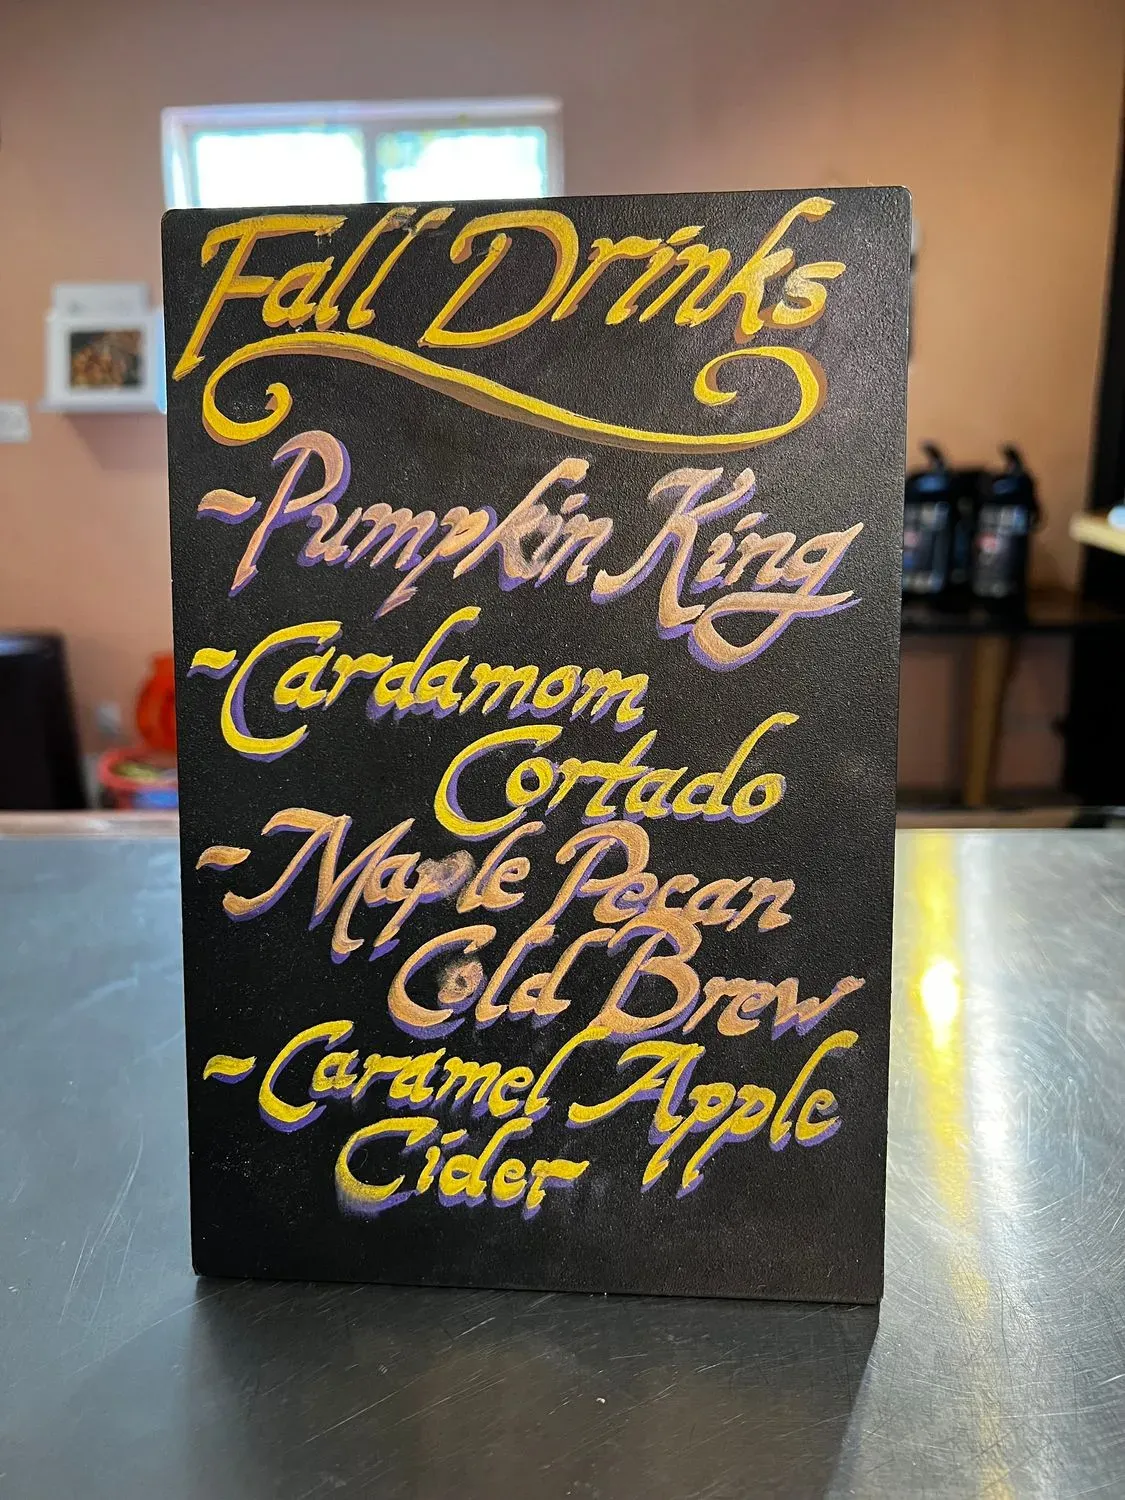 Fall Drinks
~Pumpkin King
~Cardamom
Cortado
~Maple Pecan
Cold Brew
~Caramel Apple
Cider